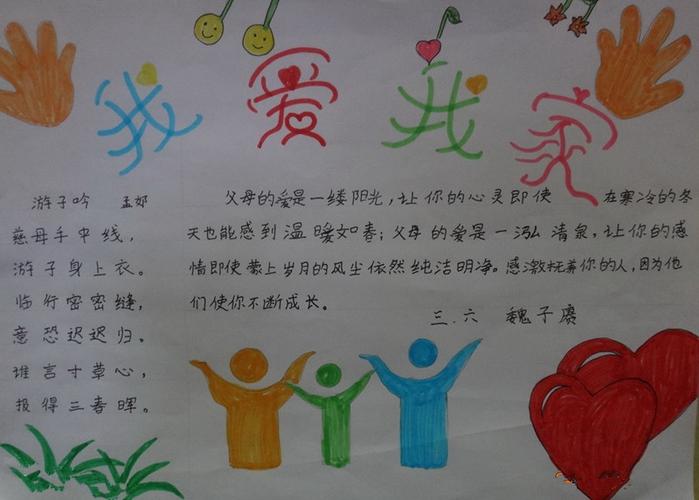 我爱我家
游子吟 孟郊
慈母手中线，
游子身上衣。
临行密密缝，
意恐迟迟归。
谁言寸草心，
报得三春晖。
父母的爱是一缕阳光，让你的心灵即使 在寒冷的冬
天也能感到温暖如春；父母的爱是一泓清泉，让你的感
情即使蒙上岁月的风尘依然纯洁明净。感激抚养你的人，因为他
们使你不断成长。
三.六 魏子赓